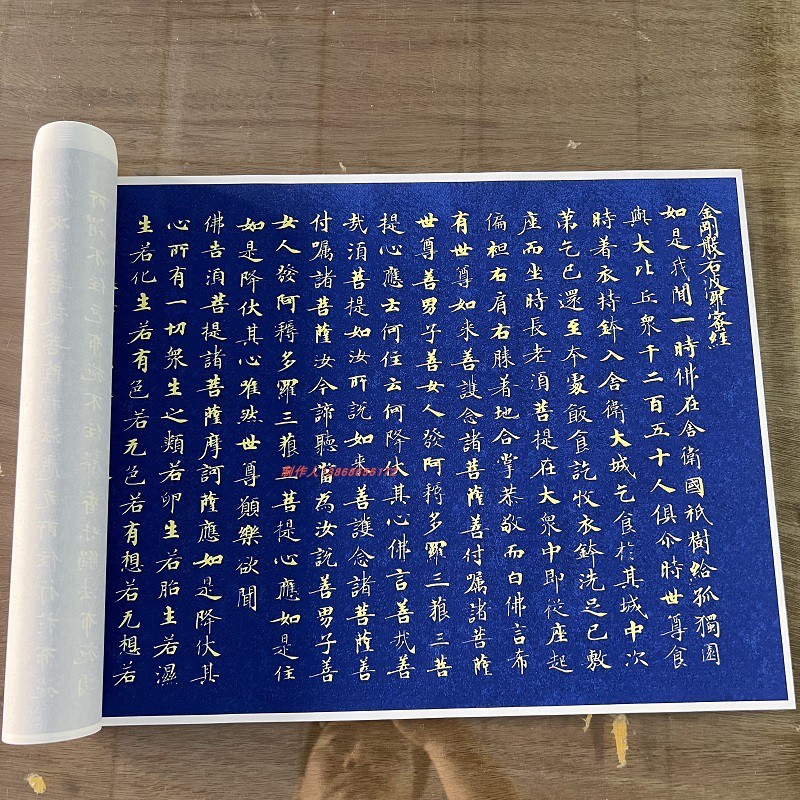 金剛般若波羅蜜經
如是我聞一時佛在舍衛國祇樹給孤獨園
與大比丘衆千二百五十人俱尒時世尊食
時著衣持鉢入舍衛大城乞食於其城中次
第乞已還至本處飯食訖收衣鉢洗足已敷
座而坐時長老須菩提在大衆中即從座起
偏袒右肩右膝著地合掌恭敬而白佛言希
有世尊如来善護念諸菩薩善付嘱諸菩薩
世尊善男子善女人發阿耨多羅三藐三菩
提心應云何住云何降伏其心佛言善哉善
哉須菩提如汝所說如来善護念諸菩薩善
付嘱諸菩薩汝今諦聽當為汝說善男子善
女人發阿耨多羅三藐三菩提心應如是住
如是降伏其心唯然世尊願樂欲聞
佛告須菩提諸菩薩摩訶薩應如是降伏其
心所有一切衆生之類若卵生若胎生若濕
生若化生若有色若无色若有想若无想若
制作人